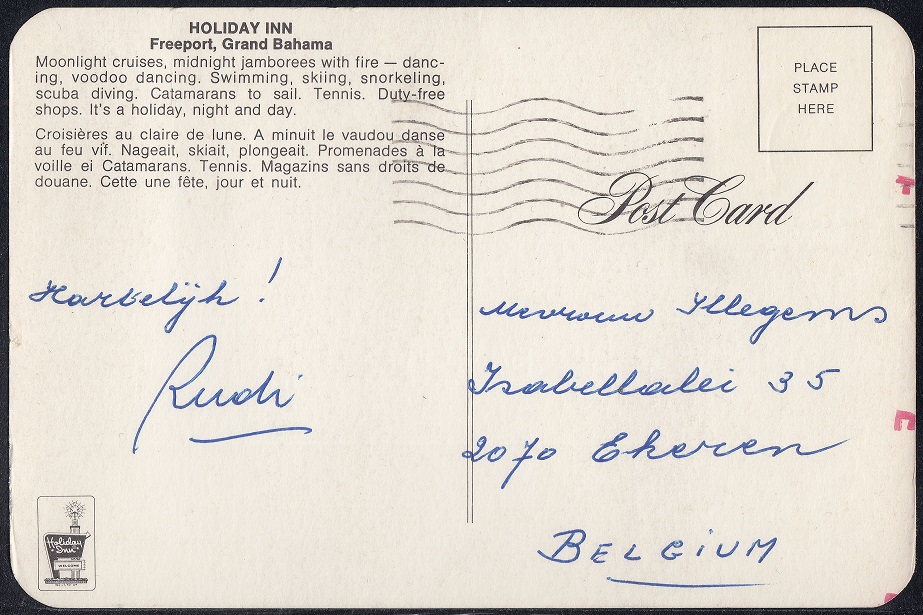 HOLIDAY INN
Freeport, Grand Bahama
Moonlight cruises, midnight jamborees with fire — danc-
ing, voodoo dancing. Swimming, skiing, snorkeling,
scuba diving. Catamarans to sail. Tennis. Duty-free
shops. It's a holiday, night and day.
Croisières au claire de lune. A minuit le vaudou danse
au feu vif. Nageait, skiait, plongeait. Promenades à la
voille ei Catamarans. Tennis. Magazins sans droits de
douane. Cette une fête, jour et nuit.
PLACE
STAMP
HERE
Post Card
Hartelijk !
Rudi
Mevrouw Illegems
Isabellalei 35
2070 Ekeren
BELGIUM
Holiday
Inn
WELCOME